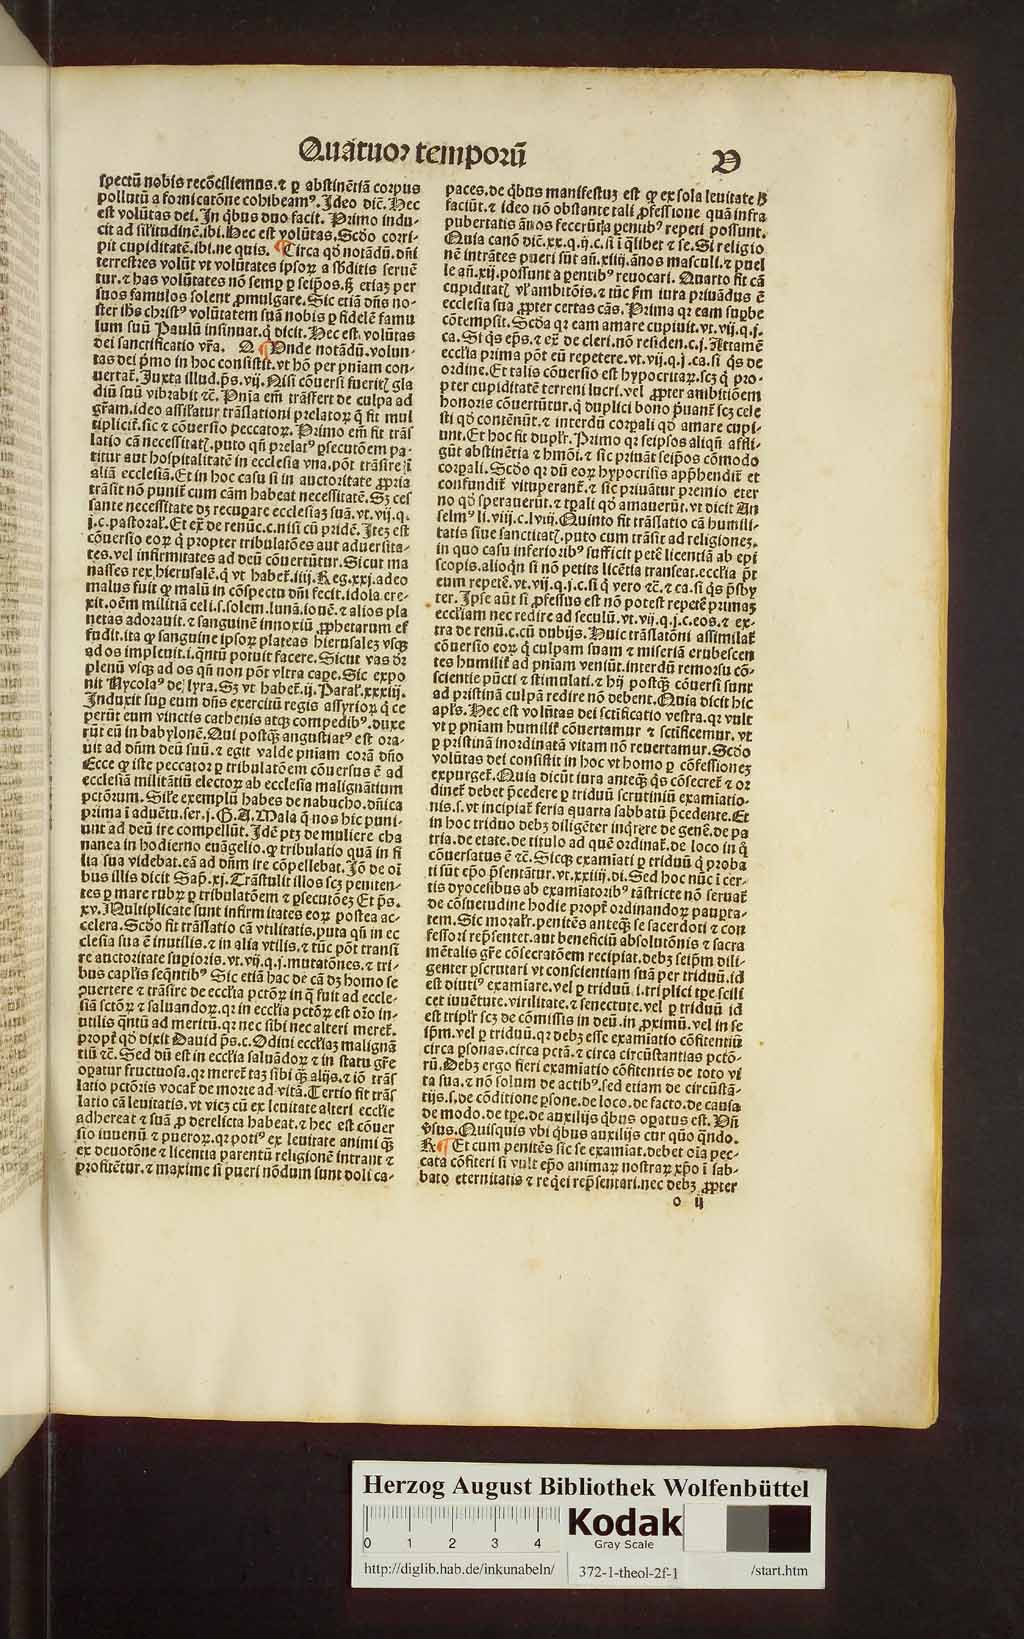 Quatuor temporū
V
spectū nobis recōsiliemus. ⁊ ꝑ abstinētiā corpus
pollutū a fornicatōne cohibeam⁹. Ideo dic̄. Hec
est volūtas dei. In qͥbus duo facit. Primo indu-
cit ad sil'itudinē. ibi. Hec est volūtas. Scd̄o corri-
pit cupiditatē. ibi. ne quis. ¶ Circa qd̄ notādū. dn̄i
terrestres volūt vt volūtates ipsoꝝ a sb̄ditis seruē
tur. ⁊ has volūtates nō semꝑ ꝑ seip̄os. sꝫ etiaꝫ per
suos famulos solent ꝓmulgare. Sic etiā dn̄s no-
ster ih̄s christ⁹ volūtatem suā nobis ꝑ fidelē famu
lum suū Paulū insinuat. qͥ dicit. Hec est volūtas
dei sanctificatio vr̄a. Q ¶ Unde notādū. volun-
tas dei pͥmo in hoc consistit. vt hō per pn̄iam con-
uertat̄. Juxta illud. ps̄. vij. Nisi cōuersi fueritꝭ gla
diū suū vibrabit ⁊c̄. Pn̄ia em̄ trāsfert de culpa ad
gr̄am. ideo assil'atur trāslationi prelatoꝝ qͥ fit mul
tiplicit̄. sic ⁊ cōuersio peccatoꝝ. Primo em̄ fit trās
latio cā necessitatꝭ. puto qn̄ prelat⁹ ꝑsecutōem pa-
titur aut hospitalitatē in ecclesia vna. pōt trāsire ī
aliā ecclesiā. Et in hoc casu si in auctoritate ꝓpria
trāsit nō punit̄ cum cām habeat necessitatē. Sꝫ ces
sante necessitate dꝫ recuꝑare ecclesiaꝫ suā. vt. vij. q.
j. c. pastoral'. Et ex̄ de renūc. c. nisi cū pridē. Iteꝫ est
cōuersio eoꝝ qͥ propter tribulatōes aut aduersita-
tes. vel infirmitates ad deū cōuertūtur. Sicut ma
nasses rex hierusalē. qͥ vt habet̄. iiij. Reg. xxj. adeo
malus fuit ꝙ malū in cōspectu dn̄i fecit. idola ere-
xit. oēm militiā celi. s. solem. lunā. iouē. ⁊ alios pla
netas adorauit. ⁊ sanguinē innoxiū ꝓphetarum ef
fudit. ita ꝙ sanguine ipsoꝝ plateas hierusaleꝫ vsqꝫ
ad os impleuit. i. qͣntū potuit facere. Sicut vas dr̄
plenū vsqꝫ ad os qn̄ non pōt vltra cape. Sic expo
nit Nycola⁹ de lyra. Sꝫ vt habet̄. ij. Paral'. xxxiij.
Induxit suꝑ eum dn̄s exercitū regis assyrioꝝ qͥ ce
perūt eum vinctis cathenis atqꝫ compedib⁹. duxe
rūt eū in babylonē. Qui postqͣꝫ angustiat⁹ est ora-
uit ad dn̄m deū suū. ⁊ egit valde pn̄iam corā dn̄o
Ecce ꝙ iste peccator ꝑ tribulatōem cōuersus ē ad
ecclesiā militātiū electoꝝ ab ecclesia malignātium
pctōrum. Sil'e exemplū habes de nabucho. dn̄ica
prima ī aduētu. ser. j. G. A. Mala qͥ nos hic puni-
unt ad deū ire compellūt. Idē ptꝫ de muliere cha
nanea in hodierno euāgelio. ꝙ tribulatio quā in fi
lia sua videbat. eā ad dn̄m ire cōpellebat. Iō de oī
bus illis dicit Sap̄. xj. Trāstulit illos scꝫ peniten-
tes ꝑ mare rubꝝ ꝑ tribulatōem ⁊ ꝑsecutōeꝫ Et ps̄.
xv. Multiplicate sunt infirmitates eoꝝ postea ac-
celera. Scd̄o fit trāslatio cā vtilitatis. puta qn̄ in ec
clesia sua ē inutilis. ⁊ in alia vtilis. ⁊ tūc pōt transī
re auctoritate suꝑioris. vt. vij. q. j. mutatōnes. ⁊ tri-
bus capl'is seqͣntib⁹ Sic etiā hac de cā dꝫ homo se
ꝯuertere ⁊ trāsire de eccl'ia pctōꝝ in qͣ fuit ad eccle-
siā sctōꝝ ⁊ saluandoꝝ. qꝛ in eccl'ia pctōꝝ est oīo in-
utilis qͣntū ad meritū. qꝛ nec sibi nec alteri meret̄.
propt̄ qd̄ dixit Dauid ps̄. c. Odiui eccl'iaꝫ malignā
tiū ⁊c̄. Sed dū est in eccl'ia saluādoꝝ ⁊ in statu gr̄e
oꝑatur fructuosa. qꝛ meret̄ taꝫ sibi qͣꝫ alijs. ⁊ iō trās
latio pctōris vocat̄ de morte ad vitā. Tertio fit trās
latio cā leuitatis. vt vicꝫ cū ex leuitate alteri eccl'ie
adhereat ⁊ suā ꝓ derelicta habeat. ⁊ hec est cōuer
sio iuuenū ⁊ pueroꝝ. qꝛ poti⁹ ex leuitate animi qͣꝫ
ex deuotōne ⁊ licentia parentū religionē intrant ⁊
ꝓfitētur. ⁊ maxime si pueri nōdum sunt doli ca-
paces. de qͥbus manifestuꝫ est ꝙ ex sola leuitate h̄
faciūt. ⁊ ideo nō obstante tali ꝓfessione quā infra
pubertatis ānos fecerūt a ꝑentib⁹ repeti possunt.
Quia canō dic̄. xx. q. ij. c. si ī qͣlibet ⁊ se. Si religio
nē intrātes pueri sūt an̄. xiiij. ānos masculi. ⁊ puel
le an̄. xij. possunt a ꝑentib⁹ reuocari. Quarto fit cā
cupiditatꝭ vl' ambitōis. ⁊ tūc ẜm iura priuādus ē
ecclesia sua ꝓpter certas cās. Prima qꝛ eam suꝑbe
cōtempsit. Scd̄a qꝛ eam amare cupiuit. vt. vij. q. j.
ca. Si qͥs ep̄s. ⁊ ex̄ de cleri. nō residen. c. j. Attamē
eccl'ia prima pōt eū repetere. vt. vij. q. j. ca. si qͥs de
ordine. Et talis cōuersio est hypocritaꝝ. scꝫ qͥ pro-
pter cupiditatē terreni lucri. vel ꝓpter ambitiōem
honoris cōuertūtur. qͥ duplici bono pͥuant̄ scꝫ cele
sti qd̄ contēnūt. ⁊ interdū corꝑali qd̄ amare cupi-
unt. Et hoc fit dupl'r. Primo qꝛ seipsos aliqn̄ affli-
gūt abstinētia ⁊ hmōi. ⁊ sic priuāt seip̄os cōmodo
corꝑali. Scd̄o qꝛ dū eoꝝ hypocrisis app̄hendit̄ et
confundit̄ vituperant̄. ⁊ sic priuātur premio eter
no qd̄ sperauerūt. ⁊ tꝑali qd̄ amauerūt. vt dicit An
selm⁹ li. viij. c. lviij. Quinto fit trāslatio cā humili-
tatis siue sanctitatꝭ. puto cum trāsit ad religioneꝫ.
in quo casu inferiorib⁹ sufficit petē licentiā ab epi
scopis. alioqͥn si nō petita licētia transeat. eccl'ia pōt
eum repetē. vt. vij. q. j. c. si qͥ vero ⁊c̄. ⁊ ca. si qͥs pͥsby
ter. Ipse aūt si ꝓfessus est nō potest repetē primaꝫ
eccl'iam nec redire ad seculū. vt. vij. q. j. c. eos. ⁊ ex-
tra de renū. c. cū dubijs. Huic trāslatōni assimilat̄
cōuersio eoꝝ qͥ culpam suam ⁊ miseriā erubescen
tes humilit̄ ad pn̄iam veniūt. interdū remorsu cō-
scientie pūcti ⁊ stimulati. ⁊ hij postqͣꝫ cōuersi sunt
ad pristinā culpā redire nō debent. Quia dicit hic
apl's. Hec est volūtas dei sctificatio vestra. qꝛ vult
vt ꝑ pn̄iam humilit̄ cōuertamur ⁊ sctificemur. vt
ꝑ pristinā inordinatā vitam nō reuertamur. Scd̄o
volūtas dei consistit in hoc vt homo ꝑ cōfessioneꝫ
expurget̄. Quia dicūt iura anteqͣꝫ qͥs cōsecret̄ ⁊ or
dinet̄ debet pͥcedere ꝑ triduū scrutiniū examiatio-
nis. s. vt incipiat̄ feria quarta sabbatū pͥcedente. Et
in hoc triduo debꝫ diligēter inqͥrere de genē. de pa
tria. de etate. de titulo ad quē ordinat̄. de loco in qͦ
cōuersatus ē ⁊c̄. Sicqꝫ examīati ꝑ triduū qͥ proba
ti sūt ep̄o pͥsentātur. vt. xxiiij. di. Sed hoc nūc ī cer-
tis dyocesibus ab examīatorib⁹ tā stricte nō seruat̄
de cōsuetudine hodie propt̄ ordinandoꝝ pauꝑta-
tem. Sic moral'r. penitēs anteqͣꝫ se sacerdoti ⁊ con
fessori repͥsentet. aut beneficiū absolutōnis ⁊ sacra
mētalis gr̄e cōsecratōem recipiat. debꝫ seip̄m dili-
genter ꝑscrutari vt conscientiam suā per triduū. id
est diuti⁹ examīare. vel ꝑ triduū. i. triplici tꝑe scili
cet iuuēture. virilitate. ⁊ senectute. vel ꝑ triduū id
est tripl'r scꝫ de cōmissis in deū. in ꝓximū. vel in se
ip̄m. vel ꝑ triduū. qꝛ debꝫ esse examiatio cōfitentiū
circa ꝑsonas. circa pctā. ⁊ circa circūstantias pctō-
rū. Debꝫ ergo fieri examiatio cōfitentis de toto vi
ta sua. ⁊ nō solum de actib⁹. sed etiam de circūstā-
tijs. s. de cōditione ꝑsone. de loco. de facto. de causa
de modo. de tꝑe. de auxilijs qͥbus oꝑatus est. Un̄
v̄sus. Quisquis vbi qͥbus auxilijs cur quō qͣndo.
R ¶ Et cum penitēs sic se examīat. debet oīa pec-
cata cōfiteri si vult ep̄o animaꝝ nostraꝝ xp̄o ī sab-
bato eternitatis ⁊ reqͥei repͥsentari. nec debꝫ ꝓpter
o ij
Herzog August Bibliothek Wolfenbüttel
0 1 2 3 4
Kodak
Gray Scale
http://diglib.hab.de/inkunabeln/
372-1-theol-2f-1
/start.htm